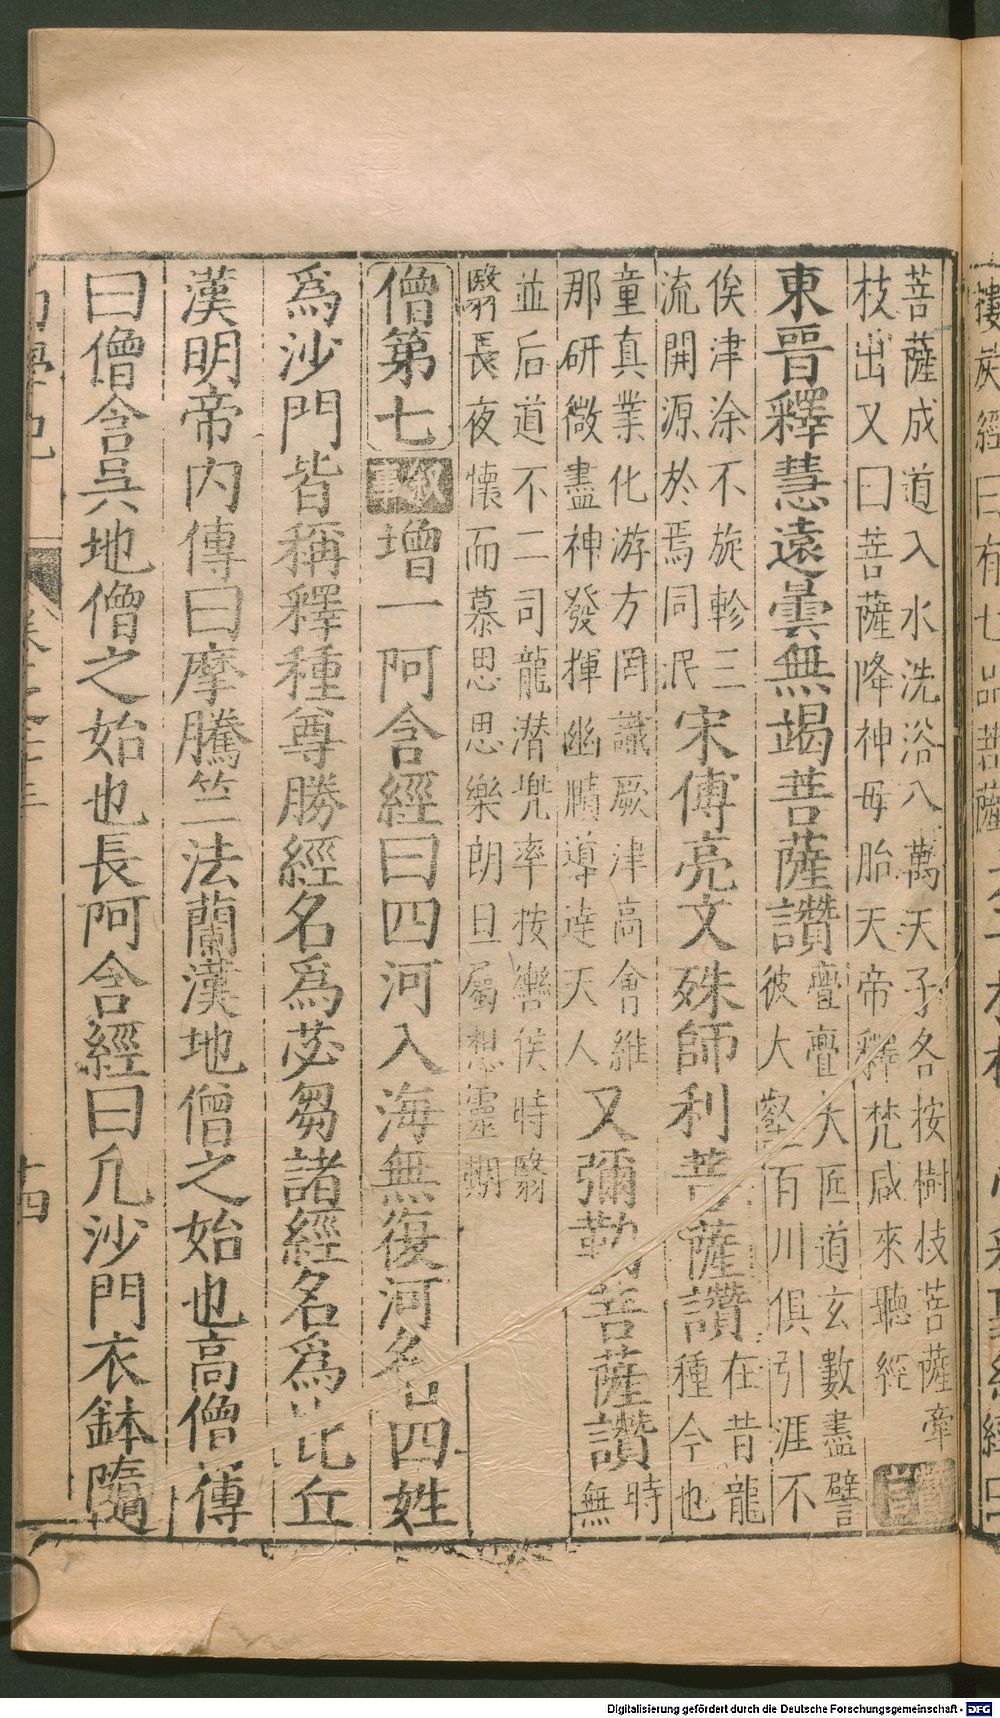 菩薩成道入水洗浴八萬天子各按樹枝菩薩牽
枝出又曰菩薩降神母胎天帝釋梵咸來聽經
東晉釋慧遠曇無竭菩薩讚
亹亹大匠道玄數盡譬
彼大壑百川俱引涯不
俟津涂不旋軫三
流開源於焉同泯
宋傅亮文殊師利菩薩讚
在昔龍
種今也
童真業化游方罔識厥津高會維
那研微盡神發揮幽賾導達天人
又彌勒菩薩讚
時
無
並后道不二司龍潛兜率按轡候時翳
翳長夜懷而慕思思樂朗旦屬想靈期
僧第七
敘事
增一阿含經曰四河入海無復河名四姓
為沙門皆稱釋種尊勝經名為苾芻諸經名為比丘
漢明帝內傳曰摩騰竺法蘭漢地僧之始也高僧傳
曰僧會吳地僧之始也長阿含經曰凡沙門衣鉢隨
十四
Digitalisierung gefördert durch die Deutsche Forschungsgemeinschaft - DFG